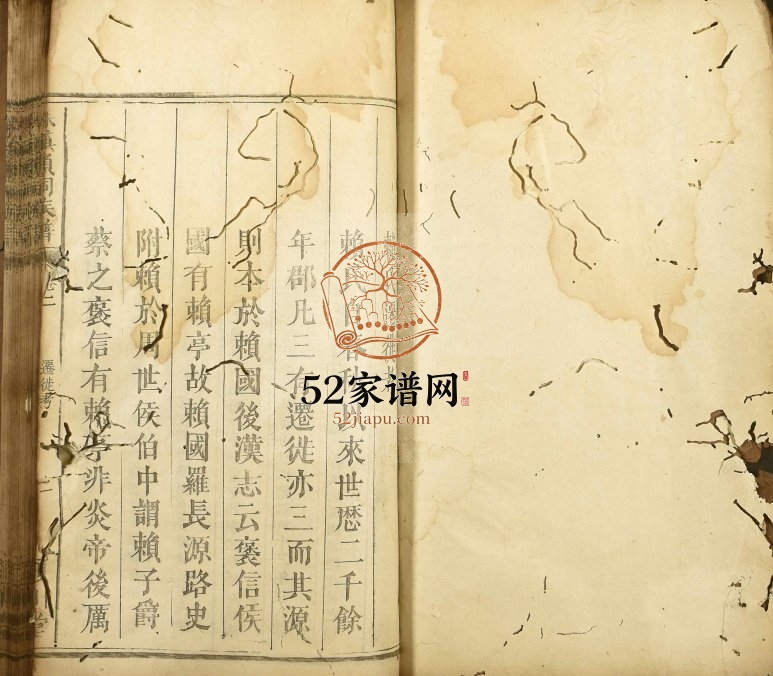 遷徙
賴氏 來世歷二千餘
年郡凡三有遷徙亦三而其源
則本於賴國後漢志云褒信侯
國有賴亭故賴國羅長源路史
附賴於周世侯伯中謂賴子爵
蔡之褒信有賴亭非炎帝後厲
遷徙考
52家谱网
52jiapu.com